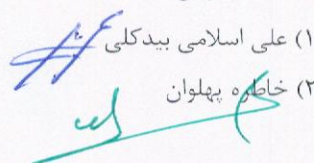 ۱) علی اسلامی بیدکلی
۲) خاطره پهلوان